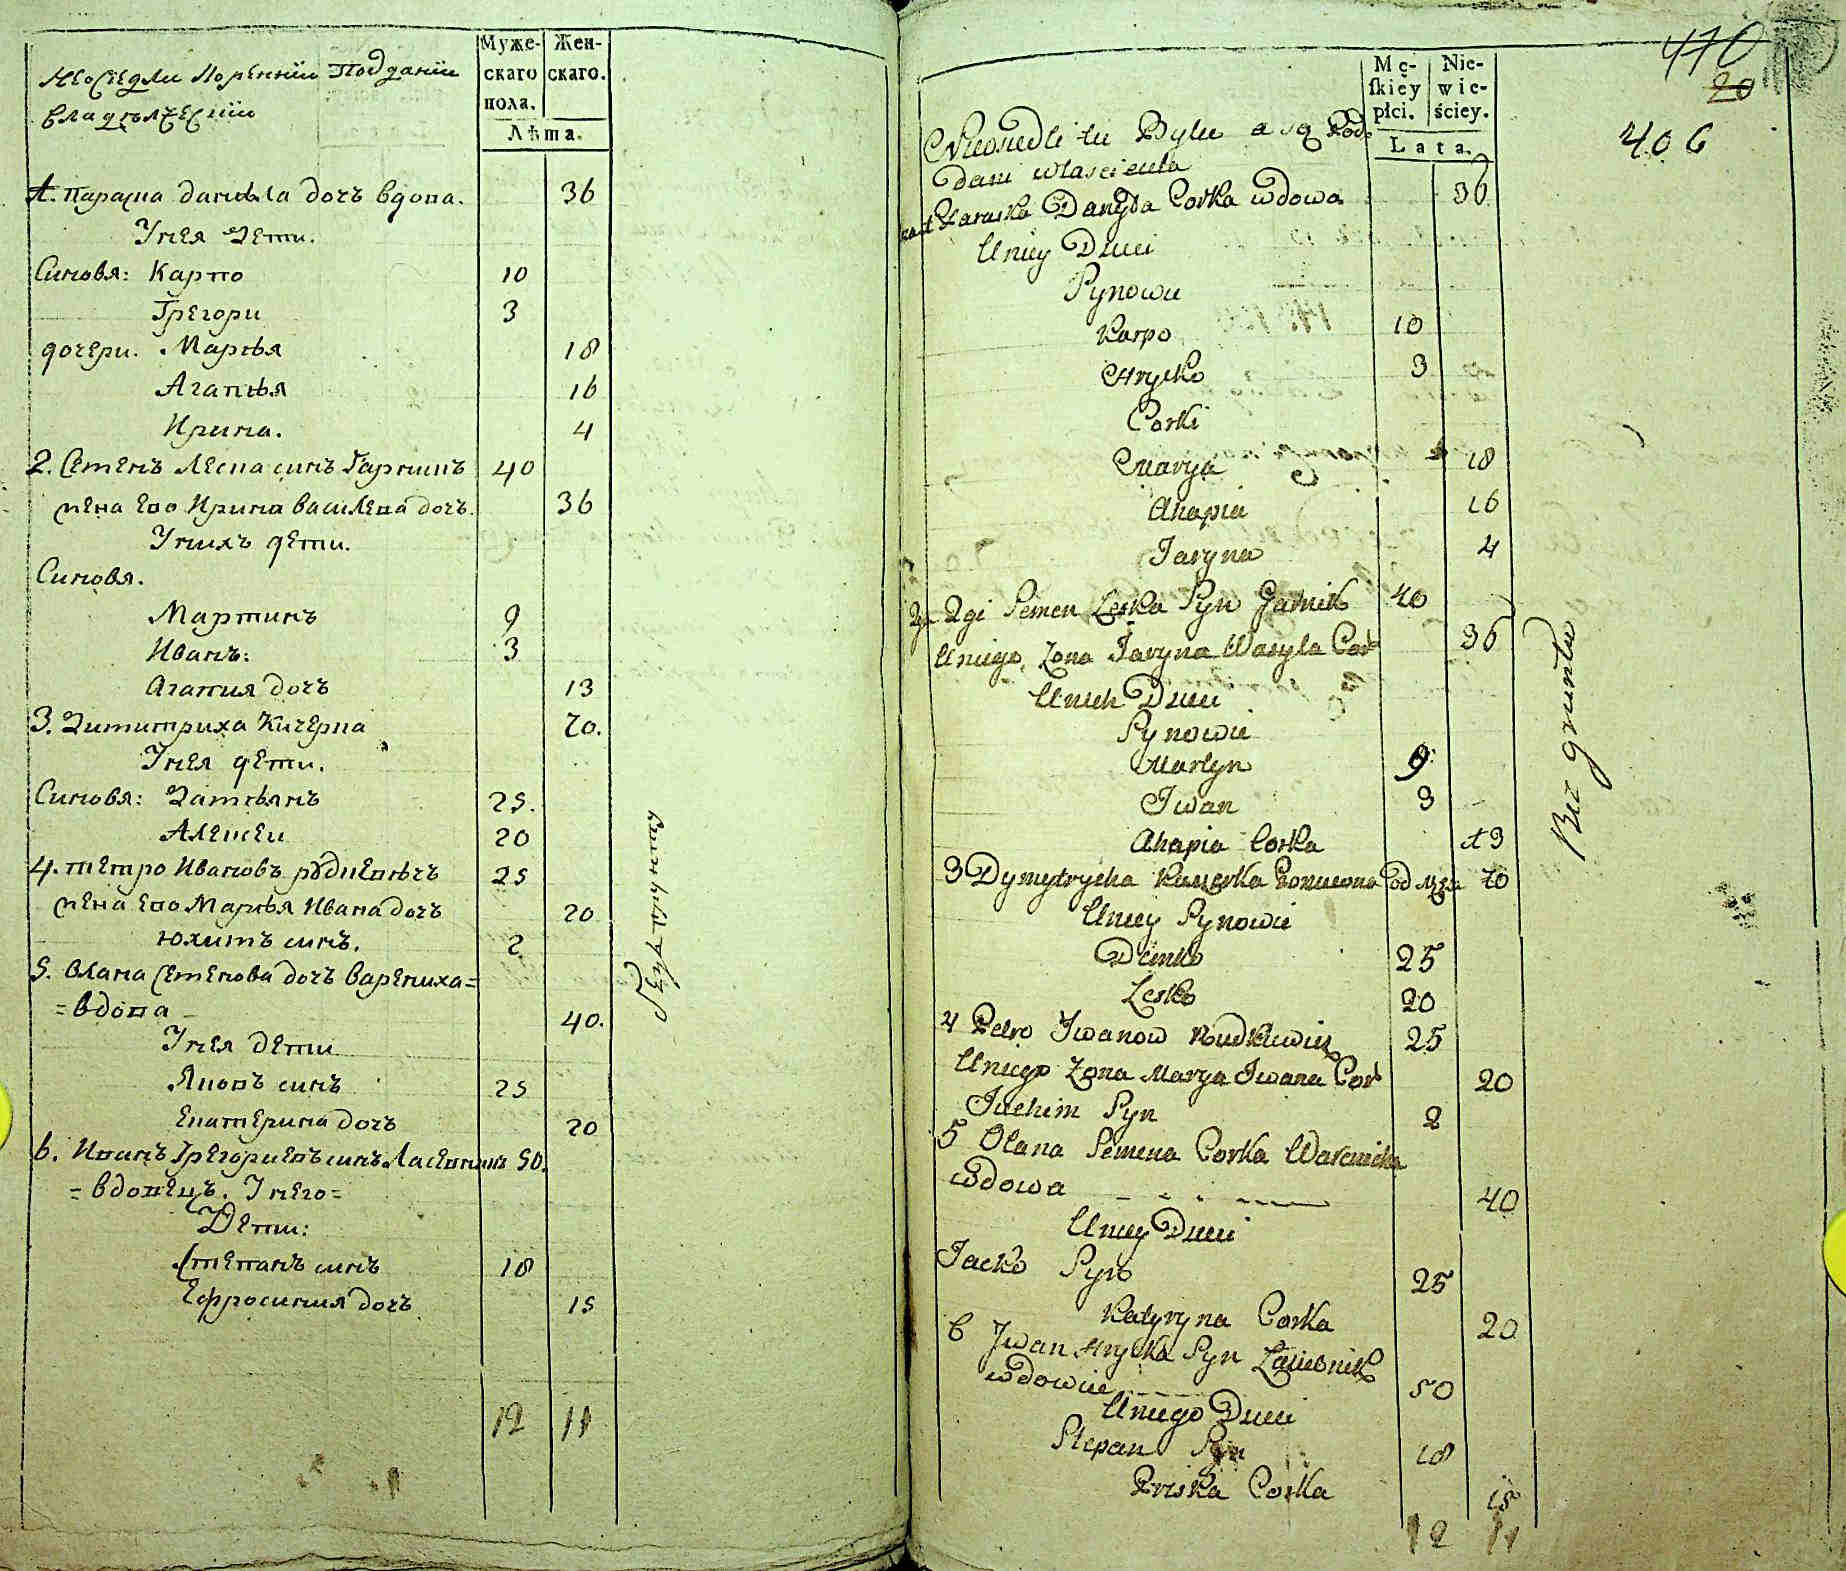 Муже-
скаго
пола.
Жен-
скаго.
Лѣта.
неоседли Коренніи Подданіи
владѣлческіи
1. Параска данила дочъ вдова. 36
У нея дети.
Синовя: Карпо 10
Грегори 3
дочери. Марья 18
Агапья 16
Ирина. 4
2. Семенъ Леска синъ Гарникъ 40
жена его Ирина василева дочъ. 36
У нихъ дети.
Синовя.
Мартинъ 9
Иванъ: 3
Агапия дочъ 13
3. Димитриха Кучерка 70.
У нея дети.
Синовя: Дамянъ 25.
Алексеи 20
4. петро Ивановъ рудкевичъ 25
жена его Марья Ивана дочъ 20
Юхимъ синъ. 2
5. Олана Семенова дочъ Варениха=
=вдова 40.
У нея дети
Яковъ синъ 25
Екатерина дочъ 20
6. Иванъ Грегориевъ синъ 50.
=вдовецъ. У него=
Дети:
Степанъ синъ 18
Ефросиния дочъ 15
12 11
безъ грунту
470
20
406
Mę-
skiey
płci.
Nie-
wie-
ściey.
Lata.
Nieosiedli tu Byli a są Pod-
dani własciciela
1 Paraska Danyła Corka wdowa 36
U niey Dzieci
Synowie
Karpo 10
Hryćko 3
Corki
Marya 18
Ahapia 16
Jaryna 4
2gi Semen Leska Syn Garnik 40
U niego Zona Jaryna Wasyla Cor 36
U nich Dzieci
Synowie
Martyn 9
Iwan 3
Ahapia Corka 13
3 Dymytrycha Kuczerka od męza 70
U niey Synowie
Demko 25
Lesko 20
4 Petro Iwanow Rudkiewicz 25
U niego Zona Marya Iwana Cor 20
Juchim Syn 2
5 Olana Semena Corka Warenicha
wdowa 40
U niey Dzieci
Jacko Syn 25
Katyryna Corka 20
6 Iwan Hryćka Syn
wdowiec 50
U niego Dzieci
Stepan Syn 18
Priska Corka 15
12 11
Bez gruntu